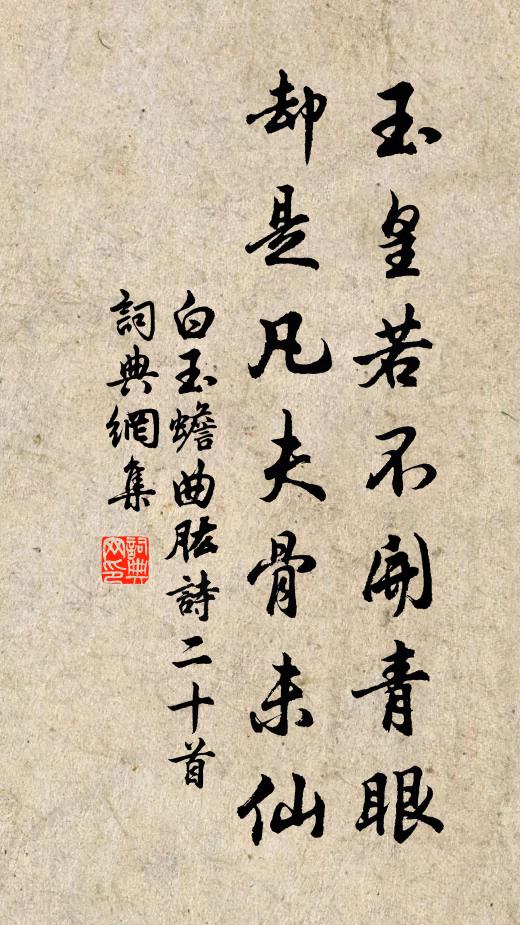 玉皇若不開青眼
却是凡夫骨未仙
白玉蟾曲肱詩二十首
詞典網集
詞典網印